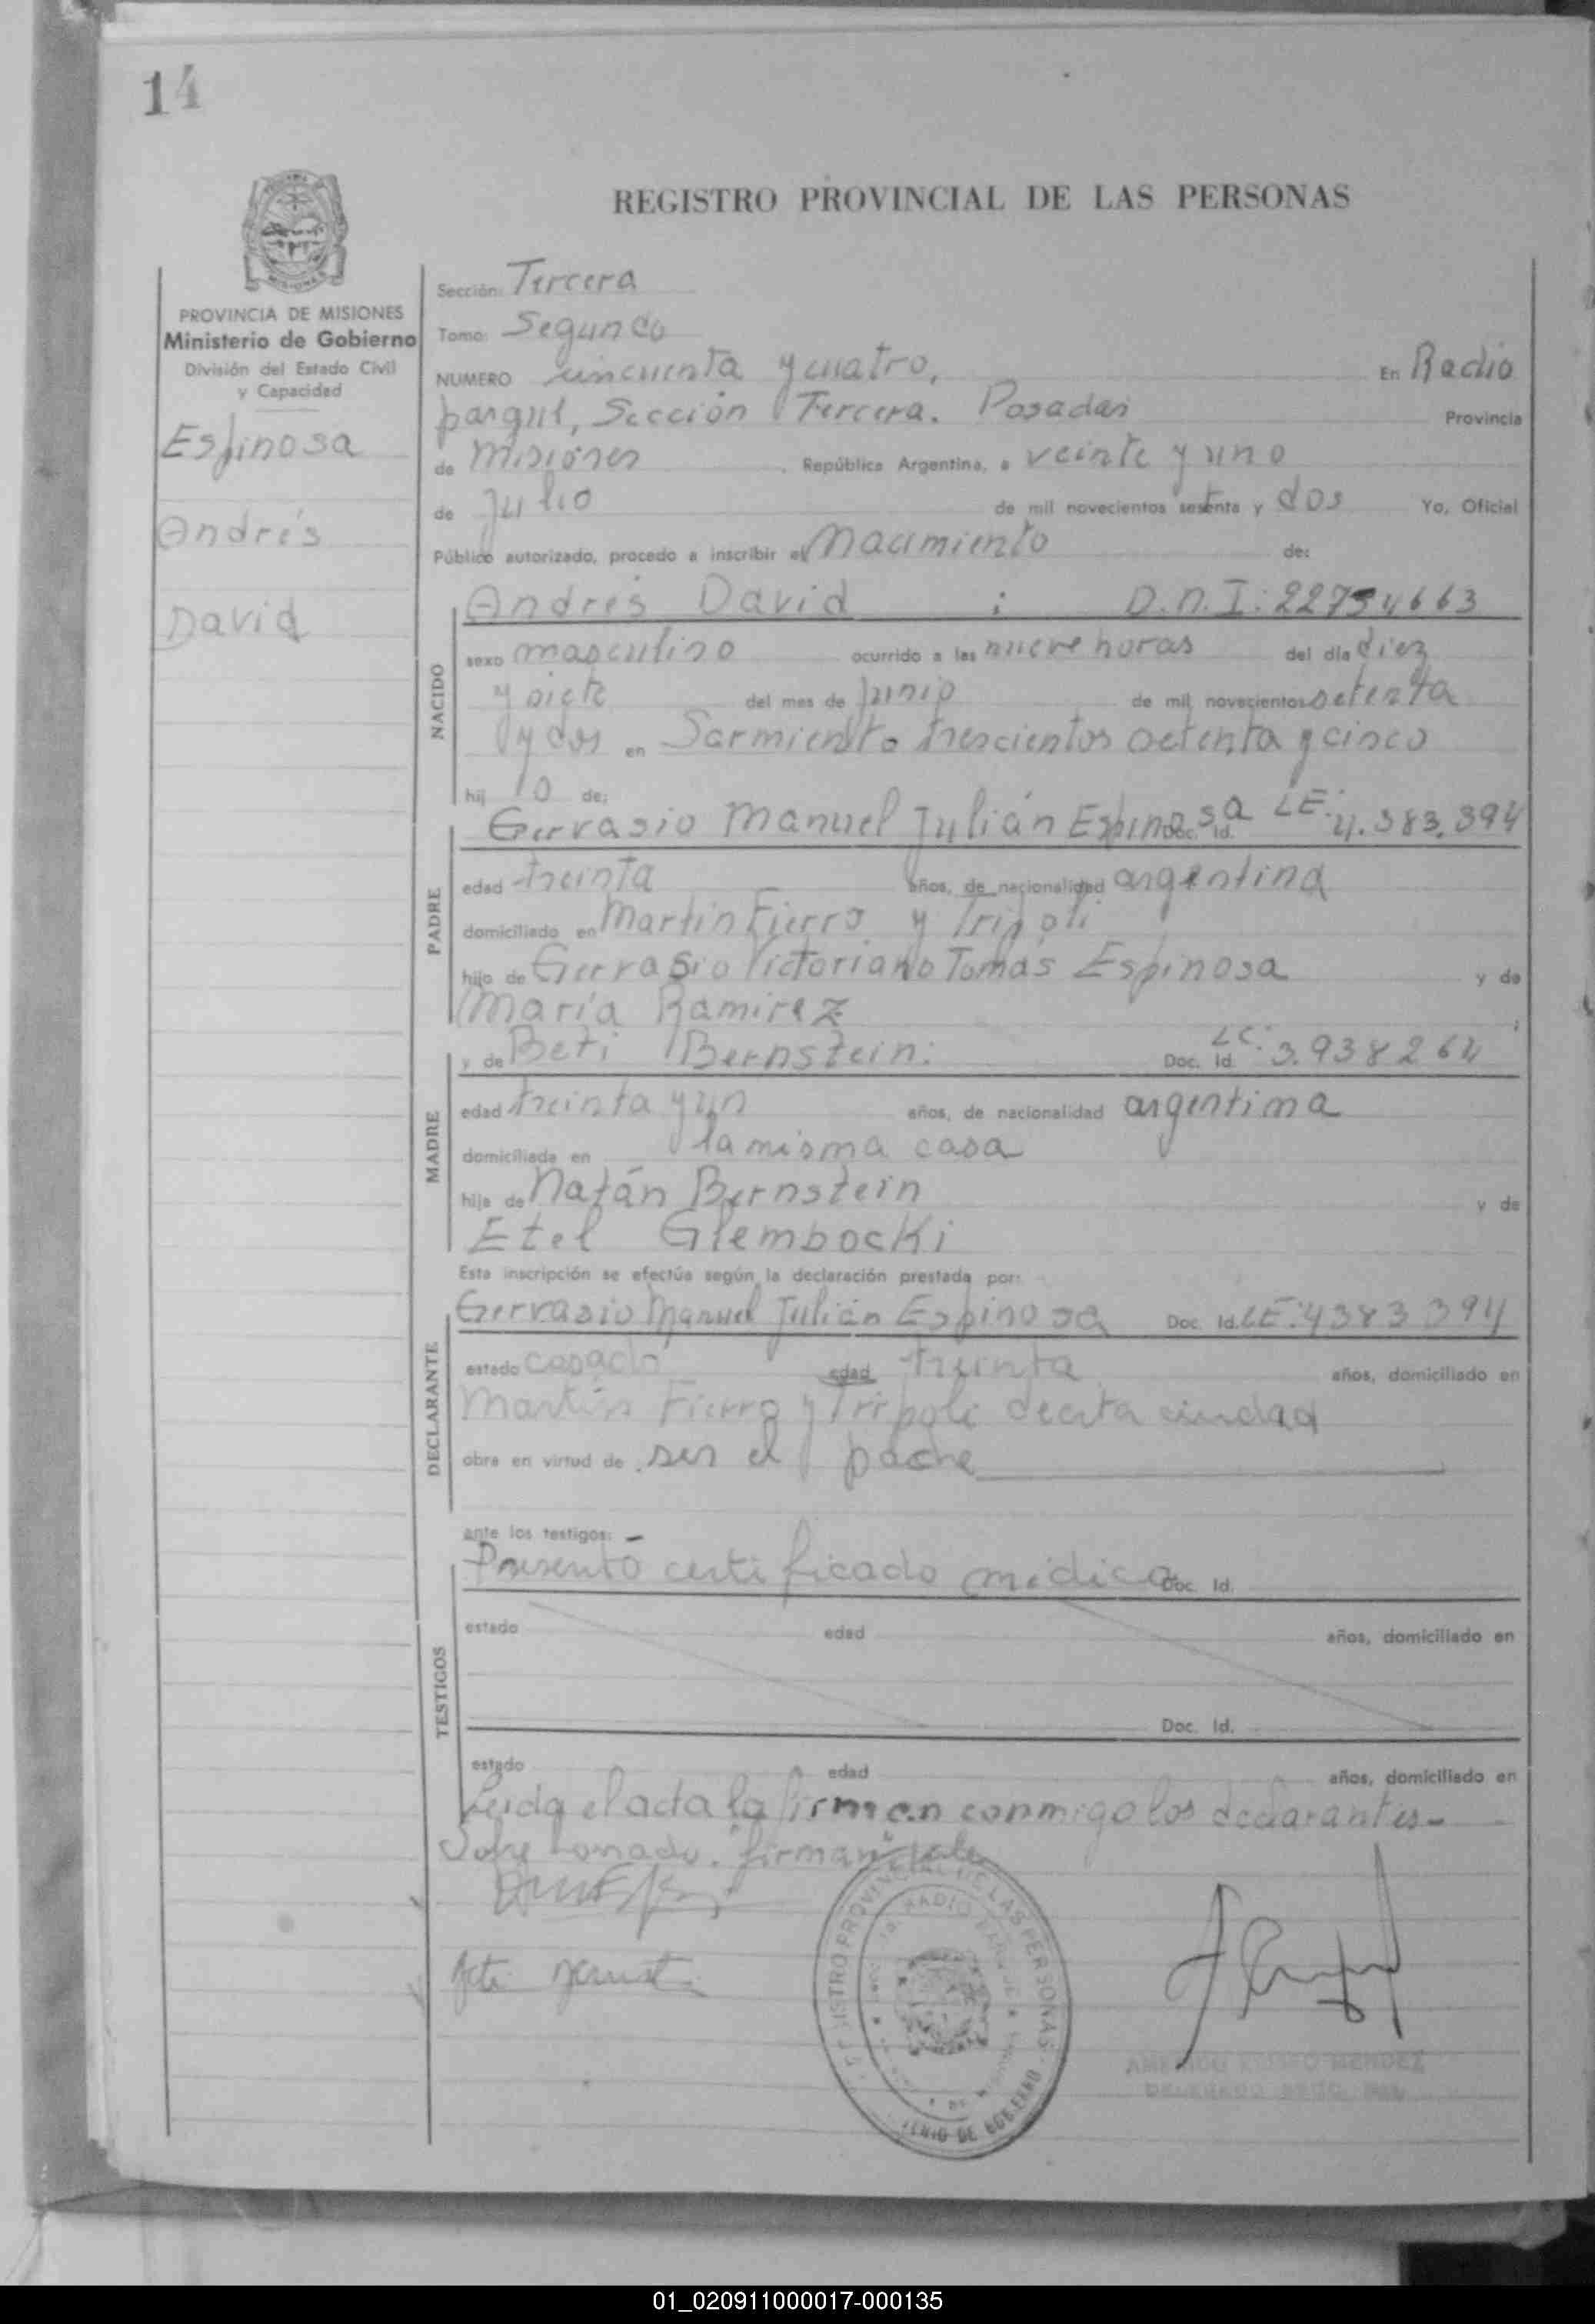 14
REGISTRO PROVINCIAL DE LAS PERSONAS
MISIONES
PROVINCIA DE MISIONES
Ministerio de Gobierno
División del Estado Civil
y Capacidad
Espinosa
Andrés
David
Sección: Tercera
Tomo: Segundo
NUMERO cincuenta y cuatro, En Radio
parque, Sección Tercera. Posadas Provincia
de Misiones República Argentina, a veinte y uno
de Julio de mil novecientos setenta y dos Yo, Oficial
Público autorizado, procedo a inscribir el Nacimiento de:
NACIDO
Andrés David : D.N.I: 22754663
sexo masculino ocurrido a las nueve horas del día diez
y siete del mes de Junio de mil novecientos setenta
y dos en Sarmiento trescientos setenta y cinco
hij o de:
PADRE
Gervasio Manuel Julián Espinosa Doc. Id. LE: 4.383.394
edad treinta años, de nacionalidad argentina
domiciliado en Martín Fierro y Tripoli
hijo de Gervasio Victoriano Tomás Espinosa y de
María Ramirez
MADRE
y de Beti Bernstein: Doc. Id. LC: 3.938264
edad treinta y un años, de nacionalidad argentina
domiciliada en la misma casa
hija de Natán Bernstein y de
Etel Glembocki
Esta inscripción se efectúa según la declaración prestada por:
DECLARANTE
Gervasio Manuel Julián Espinosa Doc. Id. LE: 4383394
estado casado edad treinta años, domiciliado en
Martín Fierro y Tripoli de esta ciudad
obra en virtud de ser el padre
ante los testigos: -
TESTIGOS
Presentó certificado médico Doc. Id.
estado edad años, domiciliado en
Doc. Id.
estado edad años, domiciliado en
Leida el acta la firman conmigo los declarantes-
Sobre borrado: "firman" vale
REGISTRO PROVINCIAL DE LAS PERSONAS
MENDEZ
01_020911000017-000135